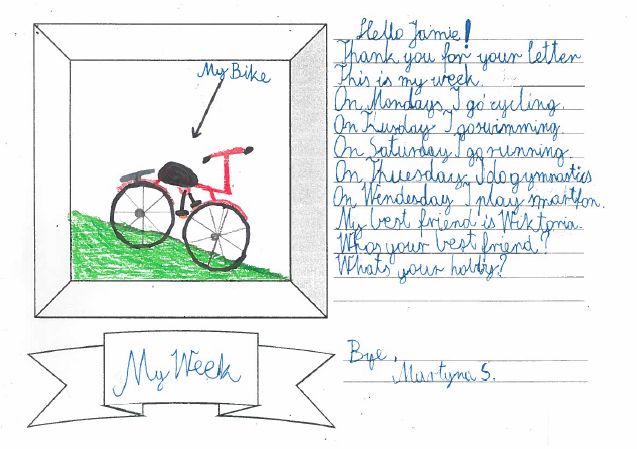 My Bike
My Week
Hello Jamie!
Thank you for your letter
This is my week.
On Mondays I go cycling.
On Tuesday I go swimming.
On Saturday I go running.
On Thuesday I do gymnastics
On Wendesday I play smartfon.
My best friend is Wiktoria.
Whos your best friend?
Whats your hobby?
Bye,
Martyna S.